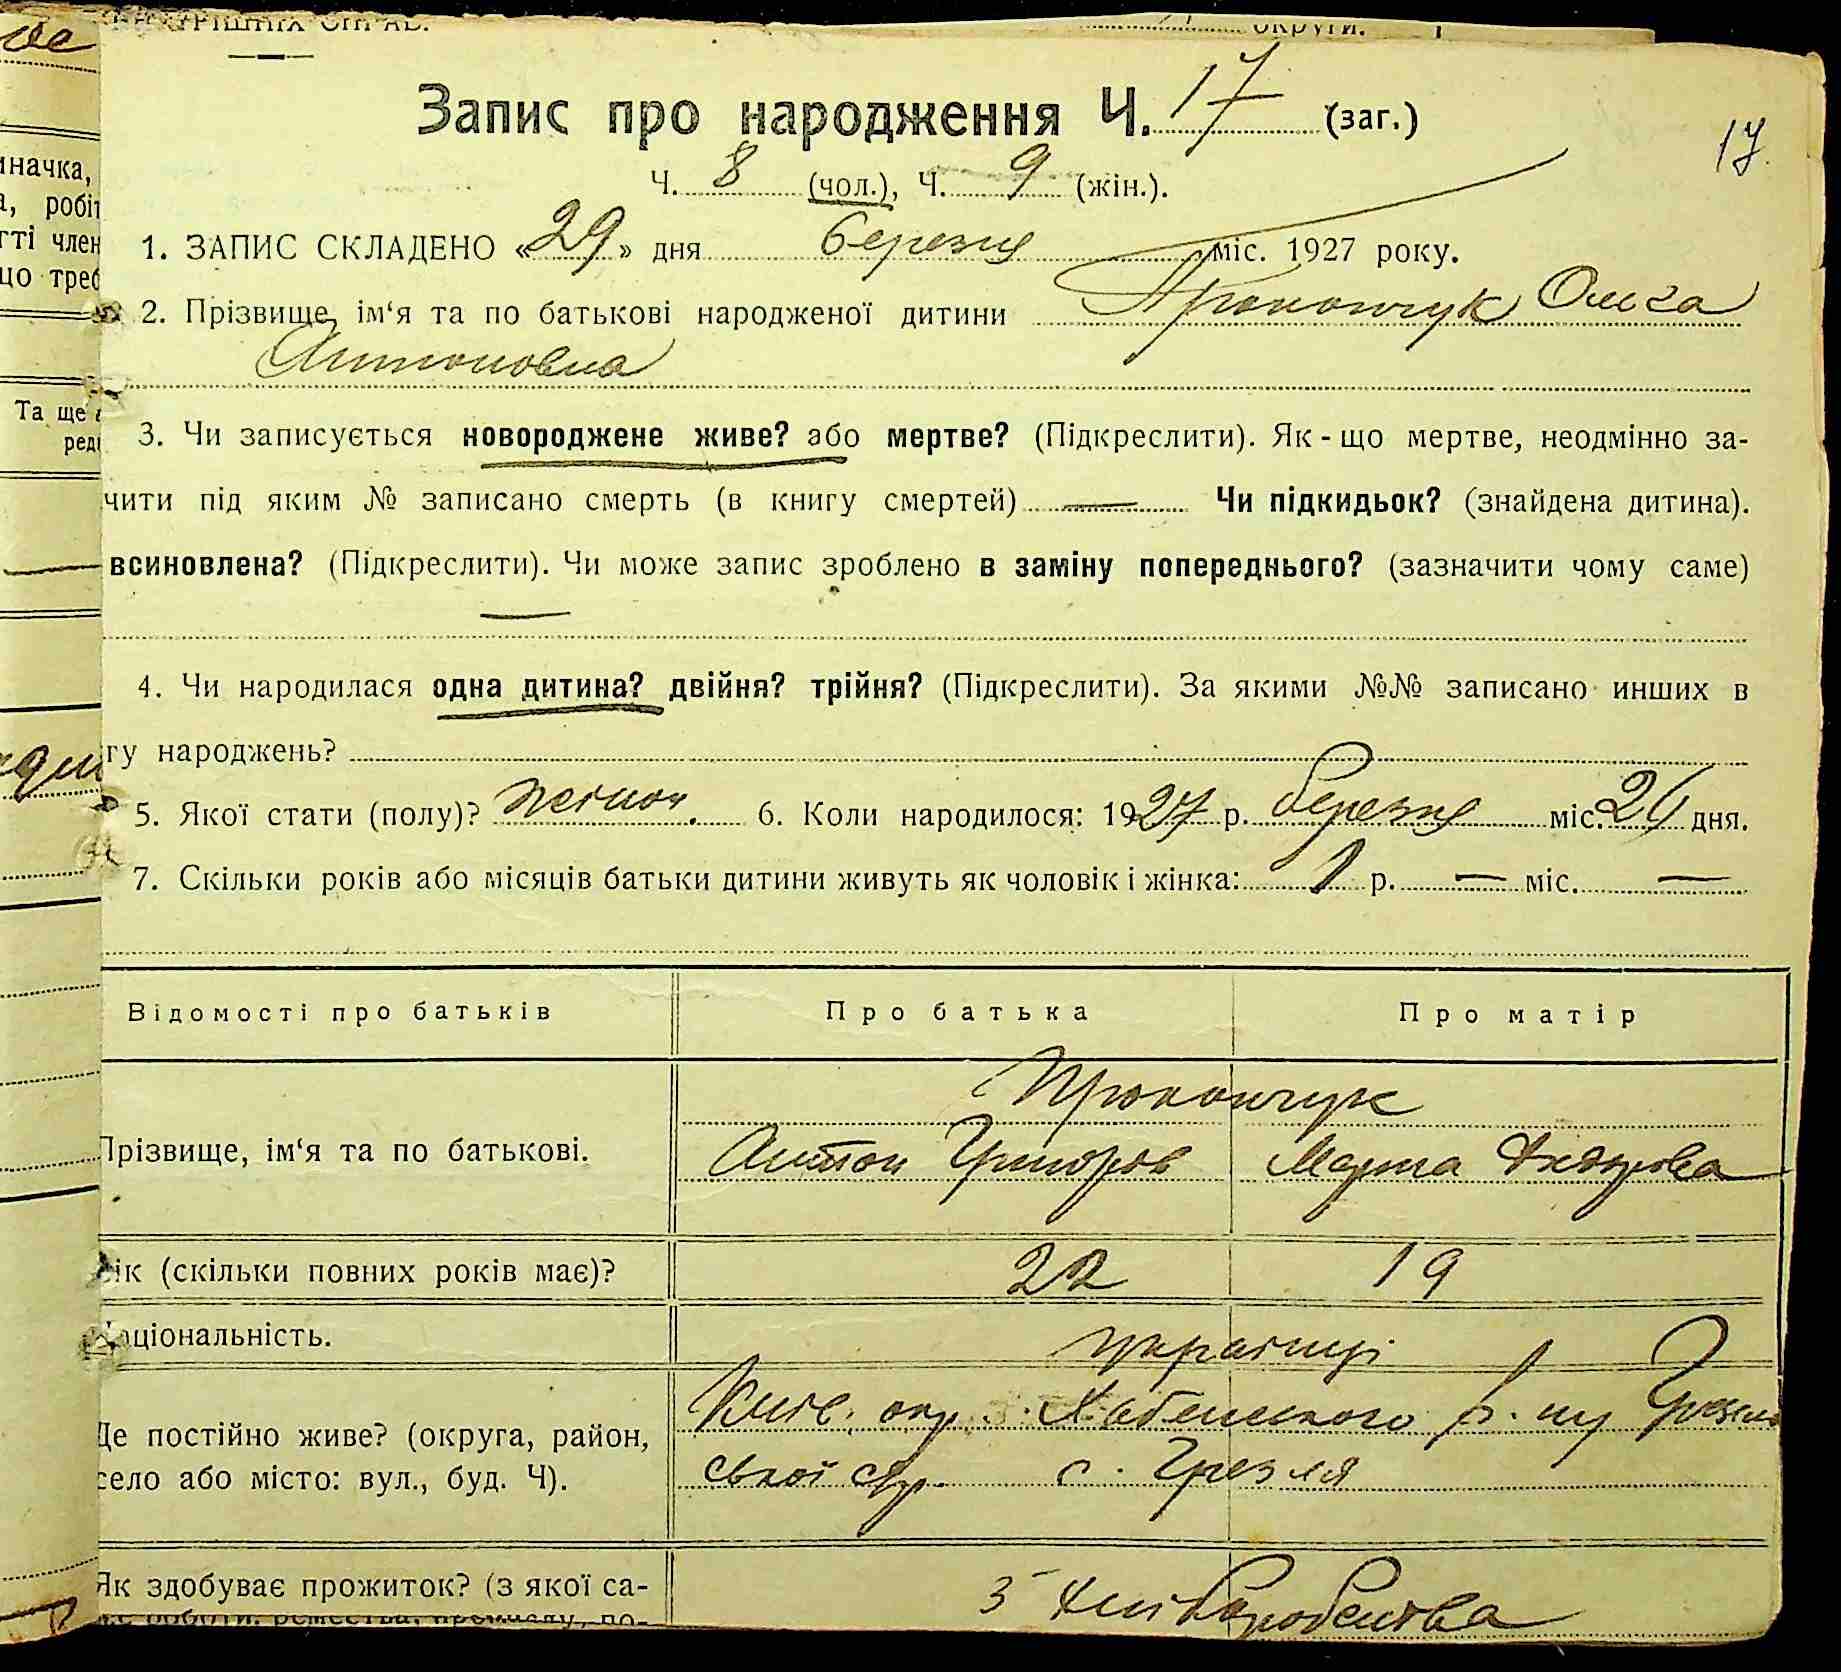 округи.
17
Запис про народження Ч. 17 (заг.)
Ч. 8 (чол.), Ч. 9 (жін.).
1. ЗАПИС СКЛАДЕНО «29» дня березня міс. 1927 року.
2. Прізвище, ім‘я та по батькові народженої дитини Прокопчук Ольга
Антоновна
3. Чи записується новороджене живе? або мертве? (Підкреслити). Як-що мертве, неодмінно за-
чити під яким № записано смерть (в книгу смертей) — Чи підкидьок? (знайдена дитина).
всиновлена? (Підкреслити). Чи може запис зроблено в заміну попереднього? (зазначити чому саме)
—
4. Чи народилася одна дитина? двійня? трійня? (Підкреслити). За якими №№ записано инших в
гу народжень?
5. Якої стати (полу)? жіноч. 6. Коли народилося: 1927 р. березня міс. 26 дня.
7. Скільки років або місяців батьки дитини живуть як чоловік і жінка: 1 р. — міс. —
Відомості про батьків Про батька Про матір
Прокопчук
Прізвище, ім‘я та по батькові. Антон Григоров Марта
ік (скільки повних років має)? 22 19
аціональність. українці
Де постійно живе? (округа, район, Київ. окр. Хабенського р-ну Грезлян
село або місто: вул., буд. Ч). ської с/р. с. Грезля
Як здобуває прожиток? (з якої са- з хліборобства
иначка,
а, робіт
ті член
що треб
Та ще
реді